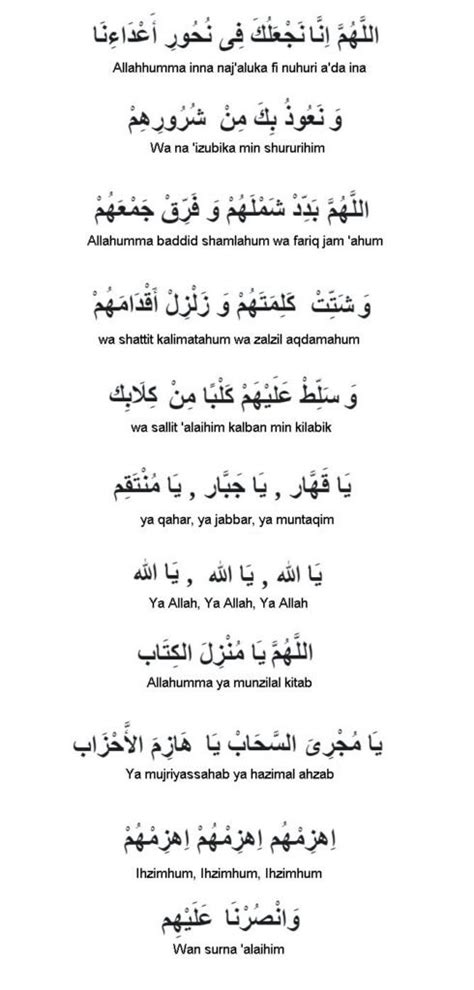 اللَّهُمَّ اِنَّا نَجْعَلُكَ فِى نُحُورِ أَعْدَاءِنَا
Allahhumma inna naj'aluka fi nuhuri a'da ina
وَ نَعُوذُ بِكَ مِنْ شُرُورِهِمْ
Wa na 'izubika min shururihim
اللَّهُمَّ بَدِّدْ شَمْلَهُمْ وَ فَرِّقْ جَمْعَهُمْ
Allahumma baddid shamlahum wa fariq jam 'ahum
وَ شَتِّتْ كَلِمَتَهُمْ وَ زَلْزِلْ أَقْدَامَهُمْ
wa shattit kalimatahum wa zalzil aqdamahum
وَ سَلِّطْ عَلَيْهَمْ كَلْبًا مِنْ كِلَابِك
wa sallit 'alaihim kalban min kilabik
يَا قَهَّار , يَا جَبَّار , يَا مُنْتَقِم
ya qahar, ya jabbar, ya muntaqim
يَا الله , يَا الله , يَا الله
Ya Allah, Ya Allah, Ya Allah
اللَّهُمَّ يَا مُنْزِلَ الكِتَاب
Allahumma ya munzilal kitab
يَا مُجْرِىَ السَّحَابْ يَا هَازِمَ الأَحْزَاب
Ya mujriyassahab ya hazimal ahzab
اِهزِمْهُم اِهزِمْهُمْ اِهزِمْهُمْ
Ihzimhum, Ihzimhum, Ihzimhum
وَانْصُرْنَا عَلَيْهِم
Wan surna 'alaihim